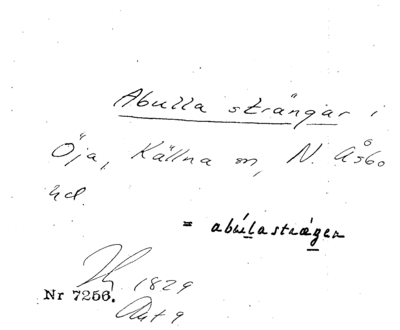 Abulla strängar i
Öja, Källna sn, N. Åsbo
hd.
= abúlastræ̨ger
1829
Nr 7256.
Akt 9